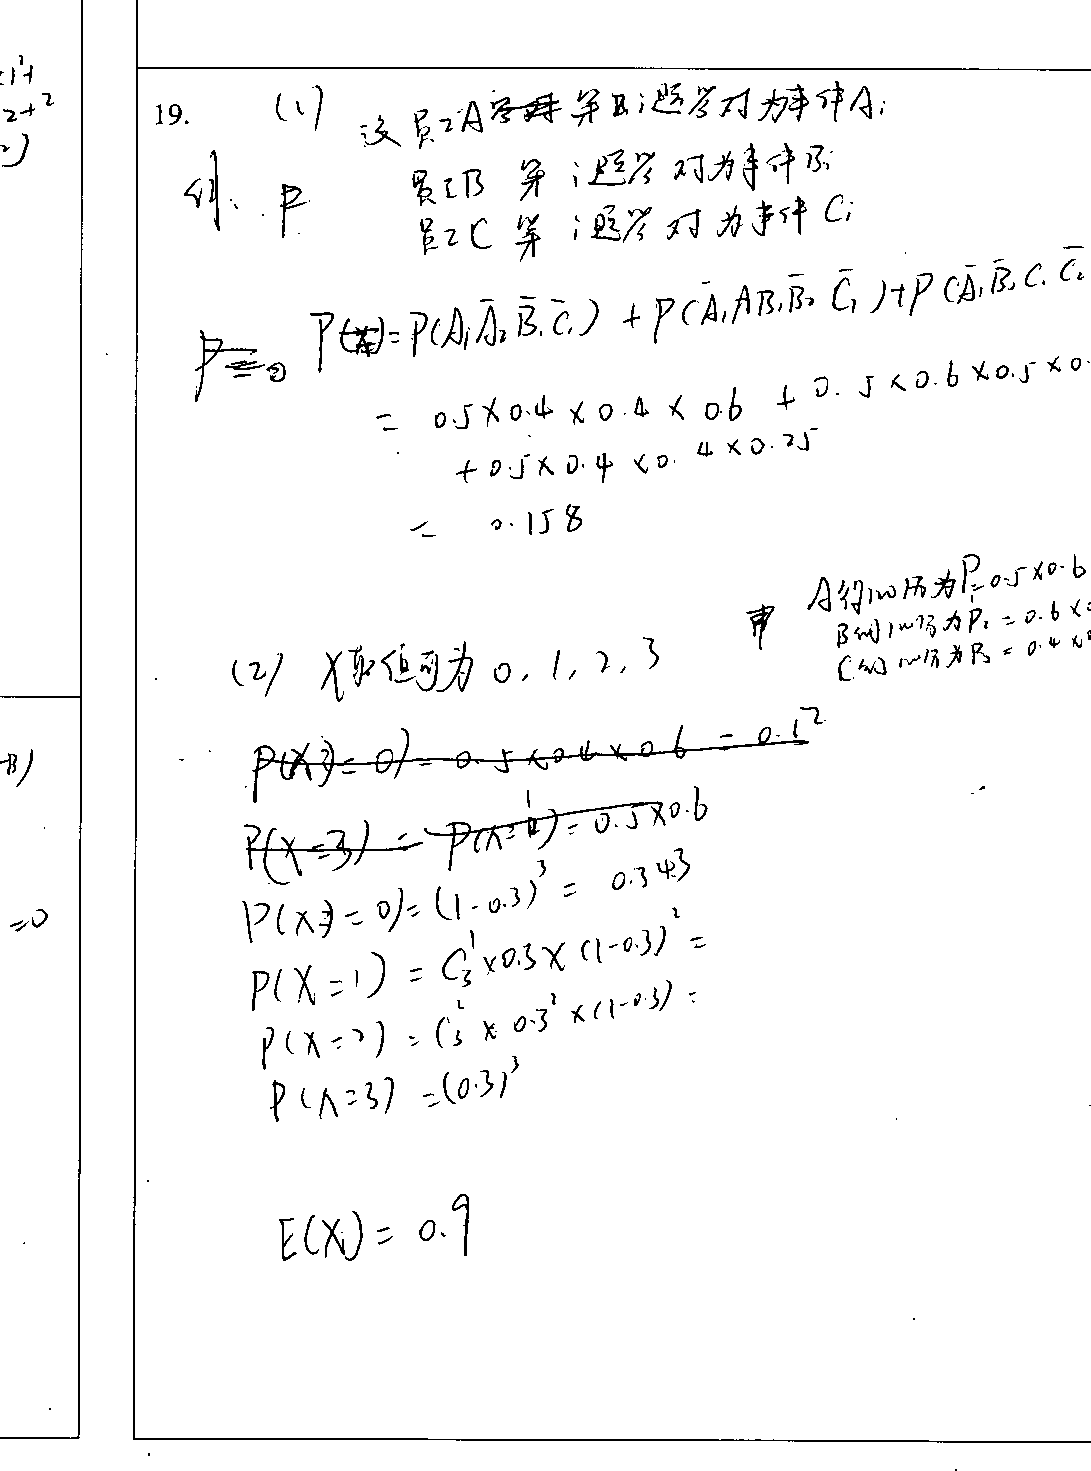 19.
(1) 设员工A第i题答对为事件Ai
员工B 第i题答对为事件Bi
员工C 第i题答对为事件Ci
P = P(A₁Ā₂B̄₁C̄₁) + P(Ā₁AB₁B̄₂C̄₁) + P(Ā₁B̄₁C₁C̄₂
= 0.5×0.4×0.4×0.6 + 0.5×0.6×0.5×0.
+0.5×0.4×0.4×0.25
= 0.158
A得100元为P₁=0.5×0.6
B得100元为P₂=0.6×
C得100元为P₃=0.4×
(2) X取值可为0,1,2,3
P(X=0)=0.5×0.4×0.6=0.12
P(X=3)= P(X=1)=0.5×0.6
P(X=0)=(1-0.3)³= 0.343
P(X=1)=C₃¹×0.3×(1-0.3)²=
P(X=2)=C₃²×0.3²×(1-0.3)=
P(X=3)=(0.3)³
E(X)=0.9
=0